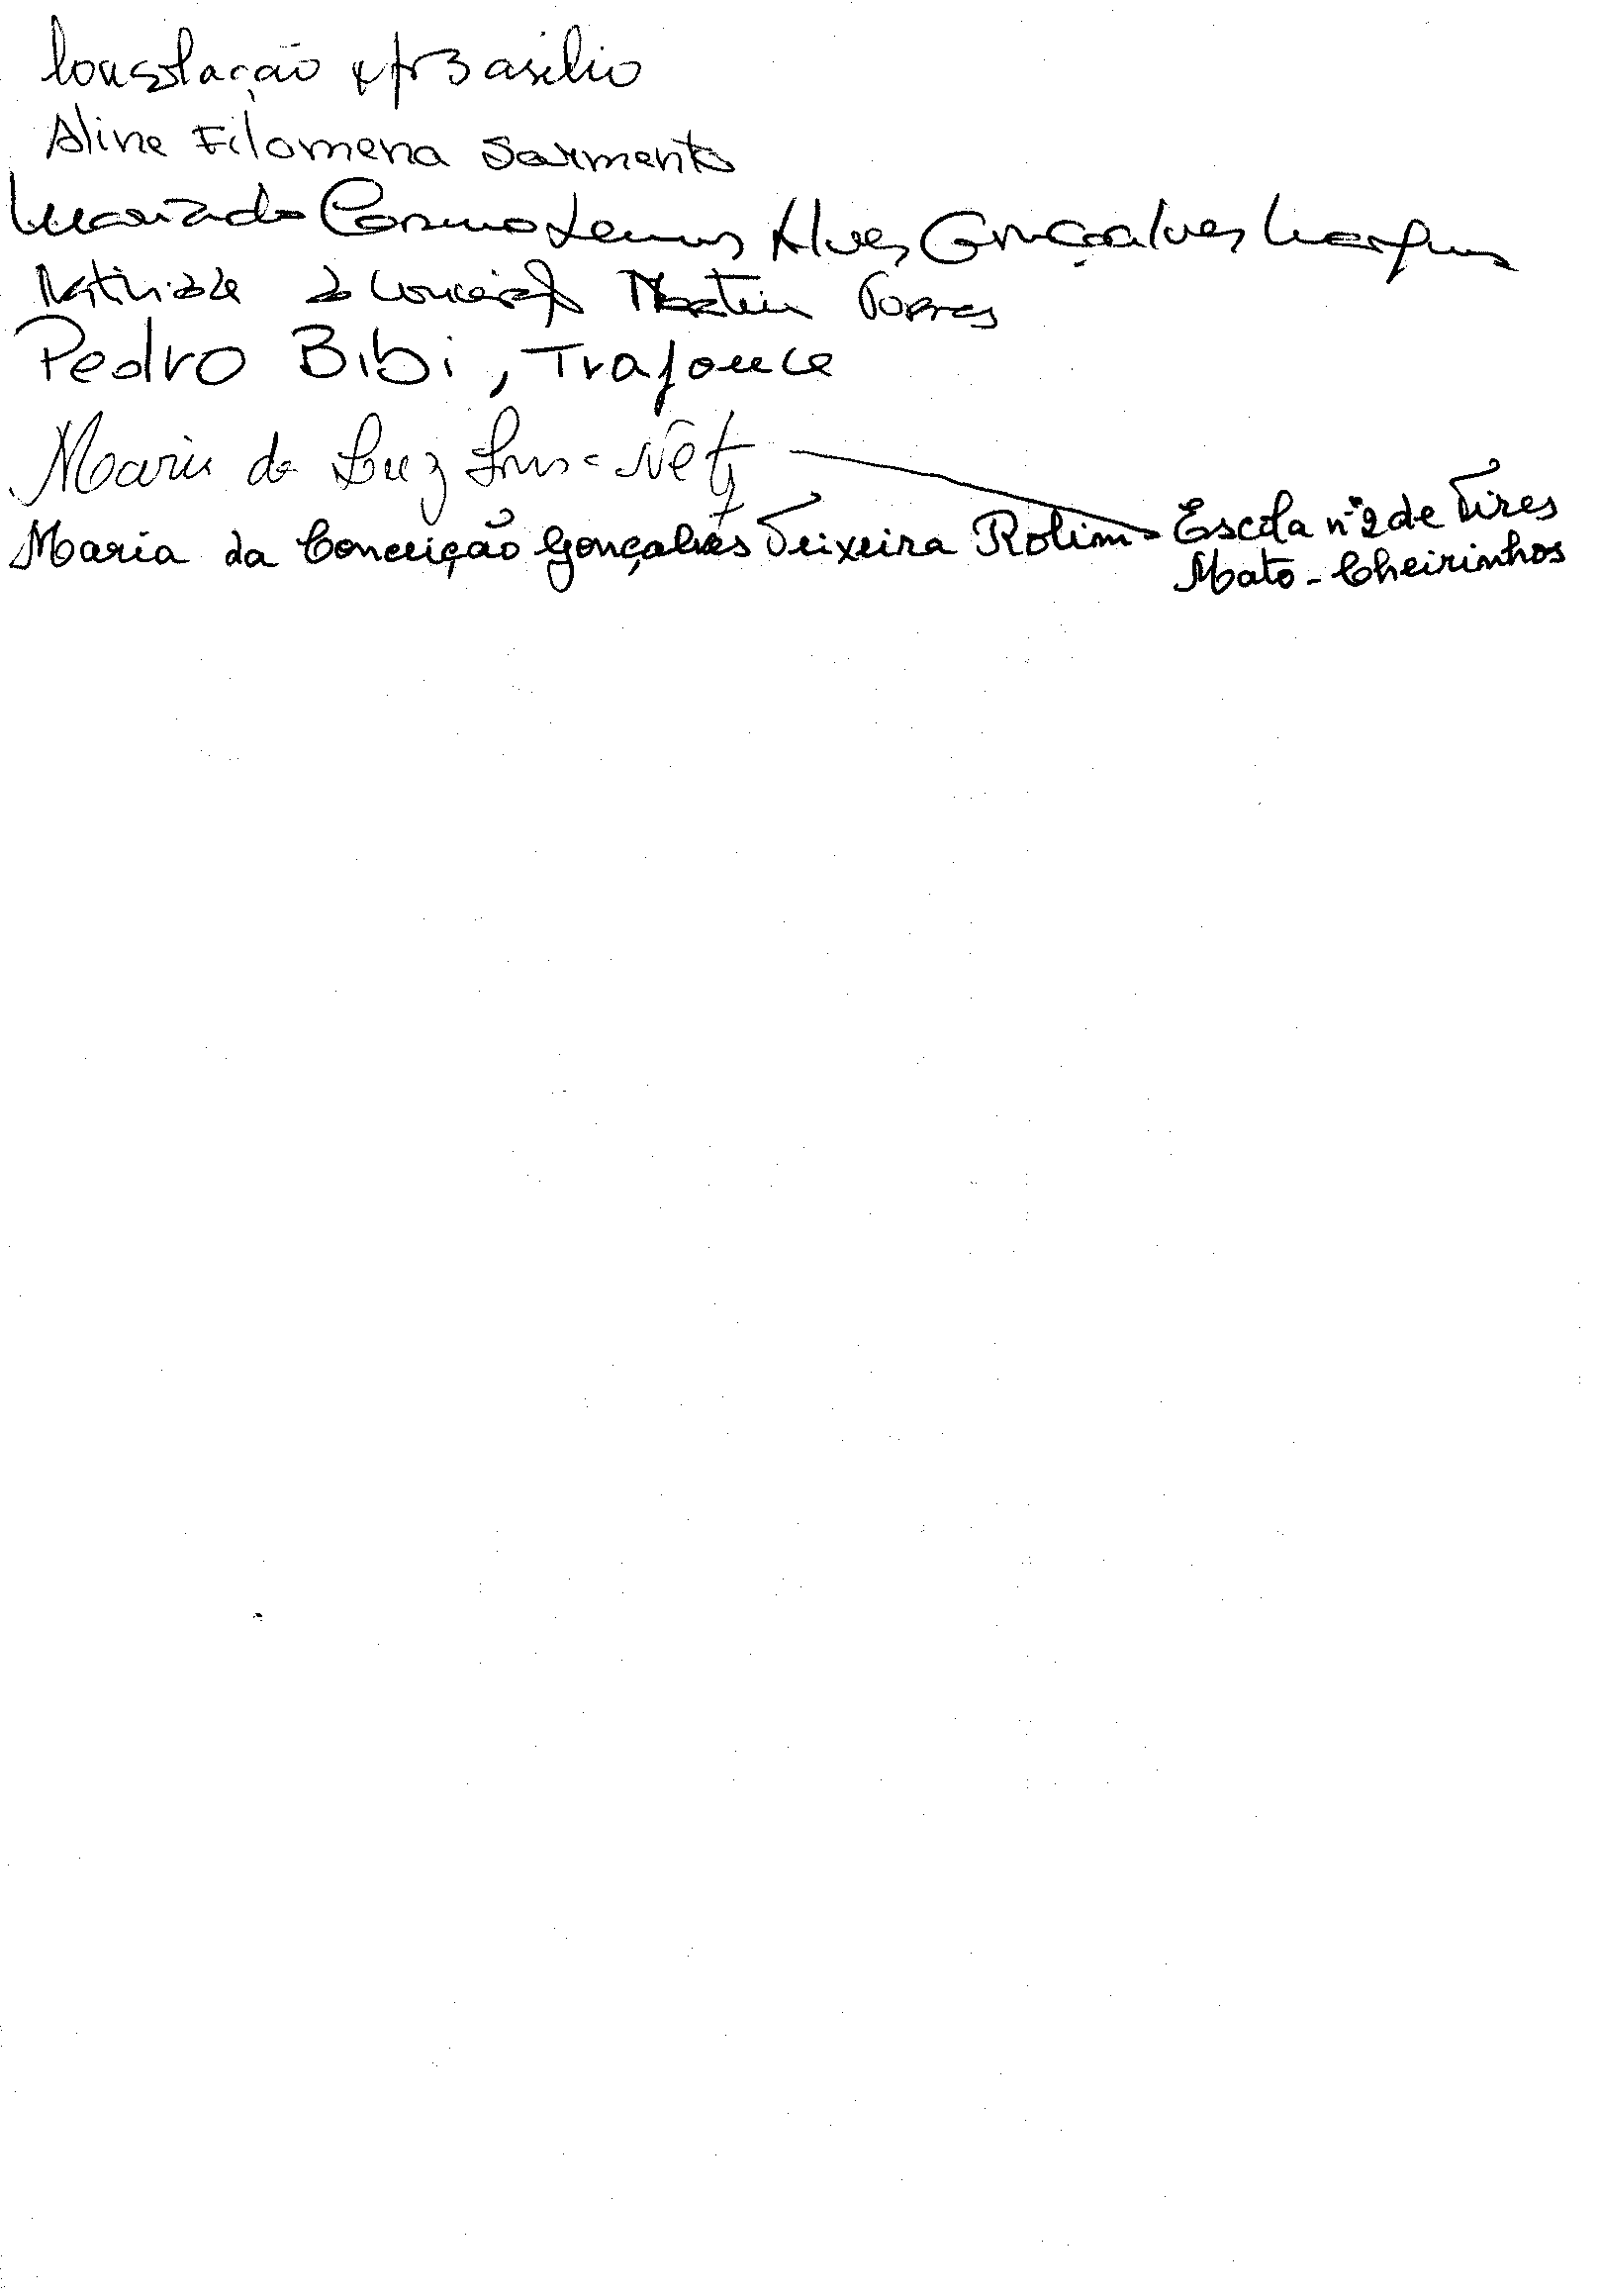 Consolação Basílio
Aline Filomena Sarmento
Maria do Carmo Lemos Alves Gonçalves Marques
Natividade da Conceição Martins Torres
Pedro Bibi, Trajouce
Maria da Luz Neto
Maria da Conceição Gonçalves Teixeira Rolim - Escola nº 2 de Tires
Mato-Cheirinhos